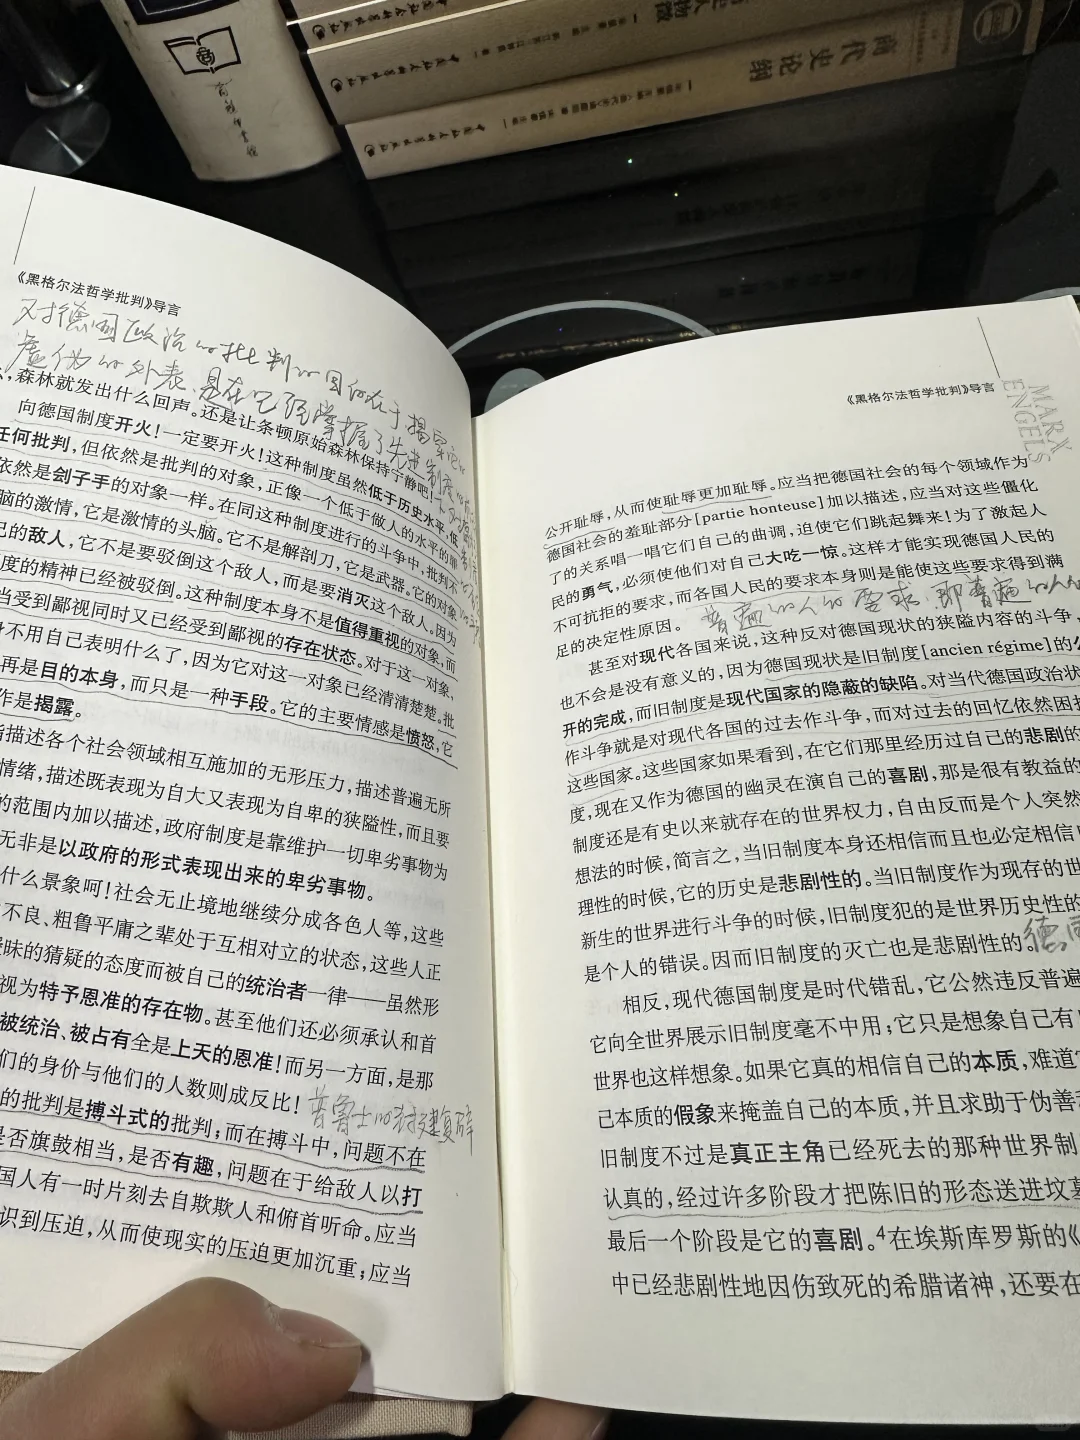 商代史论纲
商务印书馆
《黑格尔法哲学批判》导言
对德国政治的批判的目的在于揭穿它的
虚伪的外表
，森林就发出什么回声。还是让条顿原始森林保持宁静吧！
向德国制度开火！一定要开火！这种制度虽然低于历史水平，低
任何批判，但依然是批判的对象，正像一个低于做人的水平的罪
依然是刽子手的对象一样。在同这种制度进行的斗争中，批判不
脑的激情，它是激情的头脑。它不是解剖刀，它是武器。它的对象
己的敌人，它不是要驳倒这个敌人，而是要消灭这个敌人。因为
度的精神已经被驳倒。这种制度本身不是值得重视的对象，而
当受到鄙视同时又已经受到鄙视的存在状态。对于这一对象，
身不用自己表明什么了，因为它对这一对象已经清清楚楚。批
再是目的本身，而只是一种手段。它的主要情感是愤怒，它
作是揭露。
指描述各个社会领域相互施加的无形压力，描述普遍无所
情绪，描述既表现为自大又表现为自卑的狭隘性，而且要
的范围内加以描述，政府制度是靠维护一切卑劣事物为
无非是以政府的形式表现出来的卑劣事物。
什么景象呵！社会无止境地继续分成各色人等，这些
不良、粗鲁平庸之辈处于互相对立的状态，这些人正
暧昧的猜疑的态度而被自己的统治者一律——虽然形
视为特予恩准的存在物。甚至他们还必须承认和首
被统治、被占有全是上天的恩准！而另一方面，是那
们的身价与他们的人数则成反比！
普鲁士的封建复辟
的批判是搏斗式的批判；而在搏斗中，问题不在
是否旗鼓相当，是否有趣，问题在于给敌人以打
国人有一时片刻去自欺欺人和俯首听命。应当
识到压迫，从而使现实的压迫更加沉重；应当
《黑格尔法哲学批判》导言
MARX
ENGELS
公开耻辱，从而使耻辱更加耻辱。应当把德国社会的每个领域作为
德国社会的羞耻部分[partie honteuse]加以描述，应当对这些僵化
了的关系唱一唱它们自己的曲调，迫使它们跳起舞来！为了激起人
民的勇气，必须使他们对自己大吃一惊。这样才能实现德国人民的
不可抗拒的要求，而各国人民的要求本身则是能使这些要求得到满
足的决定性原因。
普遍的人的需求，即普遍的人
甚至对现代各国来说，这种反对德国现状的狭隘内容的斗争，
也不会是没有意义的，因为德国现状是旧制度[ancien régime]的公
开的完成，而旧制度是现代国家的隐蔽的缺陷。对当代德国政治状
作斗争就是对现代各国的过去作斗争，而对过去的回忆依然困扰
这些国家。这些国家如果看到，在它们那里经历过自己的悲剧的
度，现在又作为德国的幽灵在演自己的喜剧，那是很有教益的
制度还是有史以来就存在的世界权力，自由反而是个人突然
想法的时候，简言之，当旧制度本身还相信而且也必定相信
理性的时候，它的历史是悲剧性的。当旧制度作为现存的世
新生的世界进行斗争的时候，旧制度犯的是世界历史性的
是个人的错误。因而旧制度的灭亡也是悲剧性的。
德国
相反，现代德国制度是时代错乱，它公然违反普遍
它向全世界展示旧制度毫不中用；它只是想象自己有
世界也这样想象。如果它真的相信自己的本质，难道
己本质的假象来掩盖自己的本质，并且求助于伪善
旧制度不过是真正主角已经死去的那种世界制
认真的，经过许多阶段才把陈旧的形态送进坟墓
最后一个阶段是它的喜剧。4在埃斯库罗斯的《
中已经悲剧性地因伤致死的希腊诸神，还要在